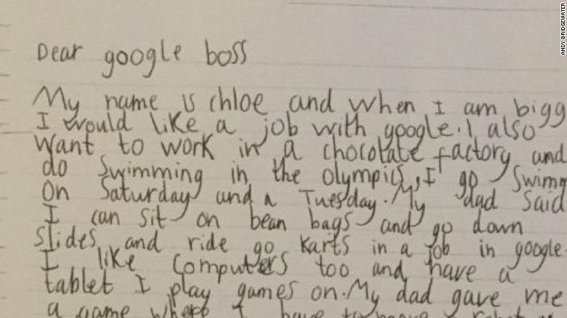 Dear google boss
My name is chloe and when I am bigg
I would like a job with google. I also
want to work in a chocolate factory and
do swimming in the olympics, I go swimm
on Saturday and a Tuesday. My dad said
I can sit on bean bags and go down
slides and ride go karts in a job in google.
I like computers too and have a
tablet I play games on. My dad gave me
a game where I have to move a robot
ANDY BRIDGEWATER